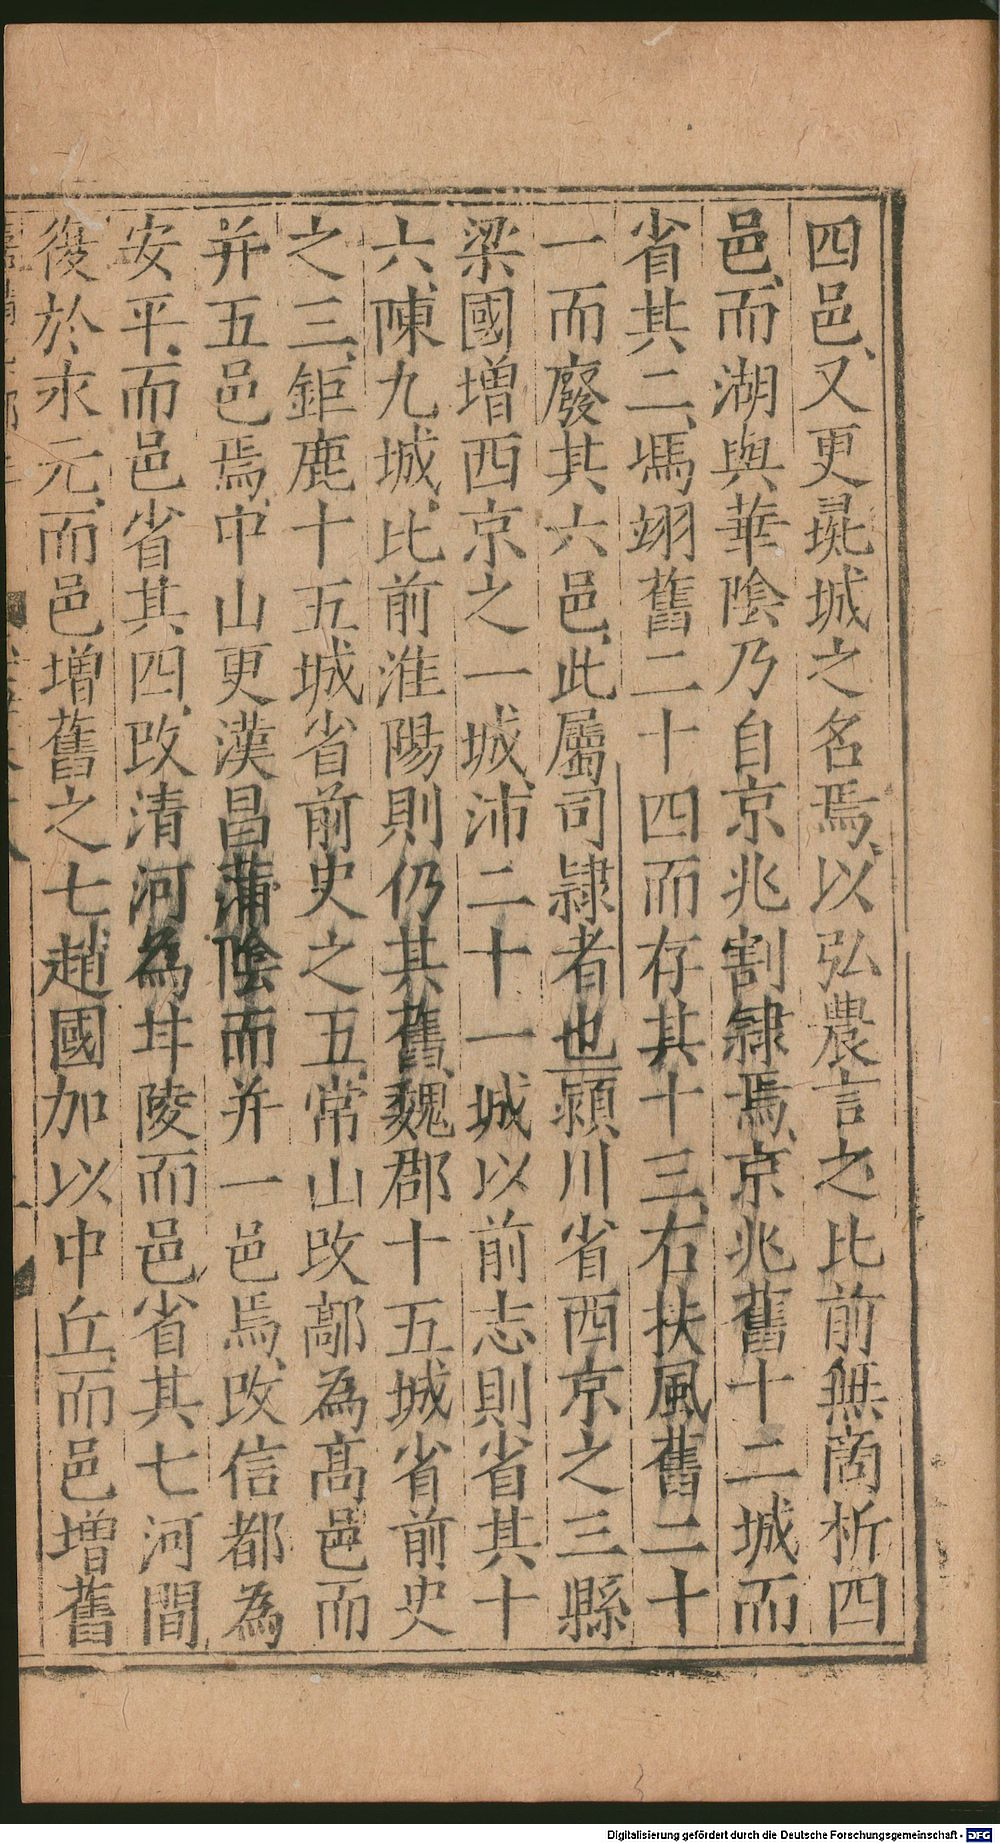 四邑、又更㲋城之名焉、以弘農言之比前無啇析四
邑、而湖與華陰乃自京兆割隸焉、京兆舊十二城而
省其二、馮翊舊二十四而存其十三、右扶風舊二十
一而廢其六邑、此屬司隷者也潁川省西京之三縣
梁國增西京之一城、沛二十一城以前志則省其十
六、陳九城、比前淮陽則仍其舊、魏郡十五城省前史
之三、鉅鹿十五城省前史之五、常山攺鄗為高邑而
并五邑焉、中山更漢昌蒲陰而并一邑焉、攺信都為
安平、而邑省其四、攺清河為甘陵而邑省其七河間
復於永元、而邑增舊之七、趙國加以中丘、而邑增舊
Digitalisierung gefördert durch die Deutsche Forschungsgemeinschaft - DFG